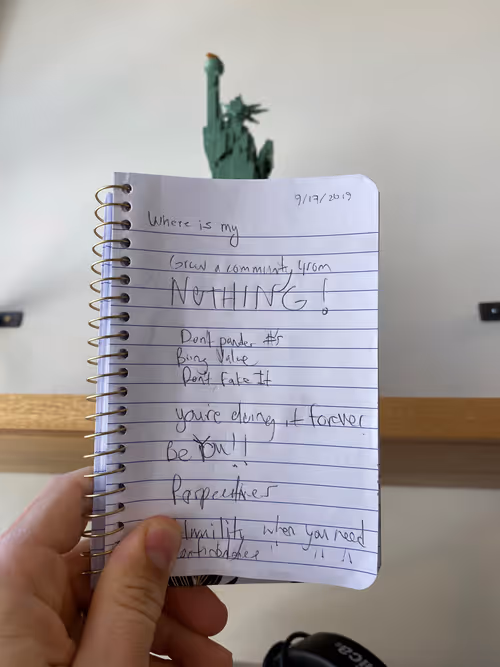 9/17/2019
Where is my
Grow a community from
NOTHING!
Don't pander #'s
Bring Value
Don't Fake It
you're doing it forever
Be You!!
Perspectives
when you need
" " "
ica